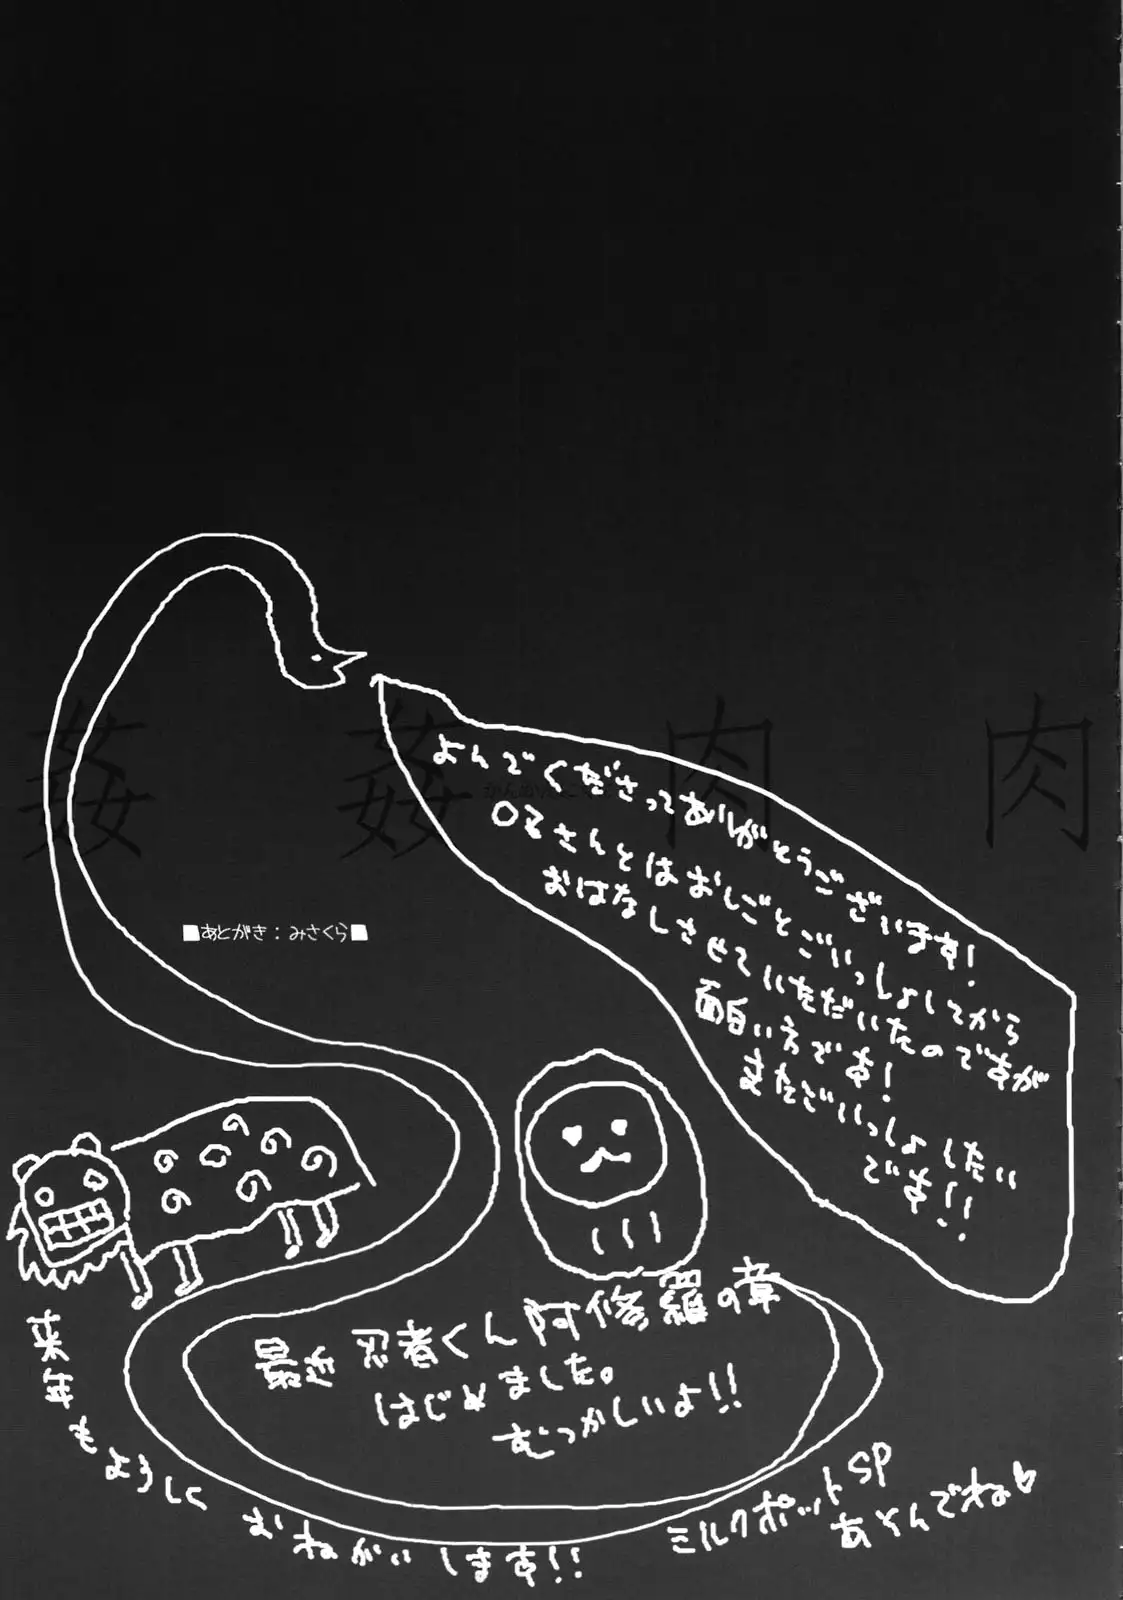 姦 姦 肉 肉
よんでくださってありがとうございます!
OZさんとはおしごとごいっしょしてから
おはなしさせていただいたのですが
面白い方です!
またごいっしょしたい
です!!
■あとがき:みさくら■
最近 忍者くん阿修羅の章
はじめました。
むつかしいよ!!
来年もよろしく おねがいします!!
ミルクポットSP
あそんでね♡